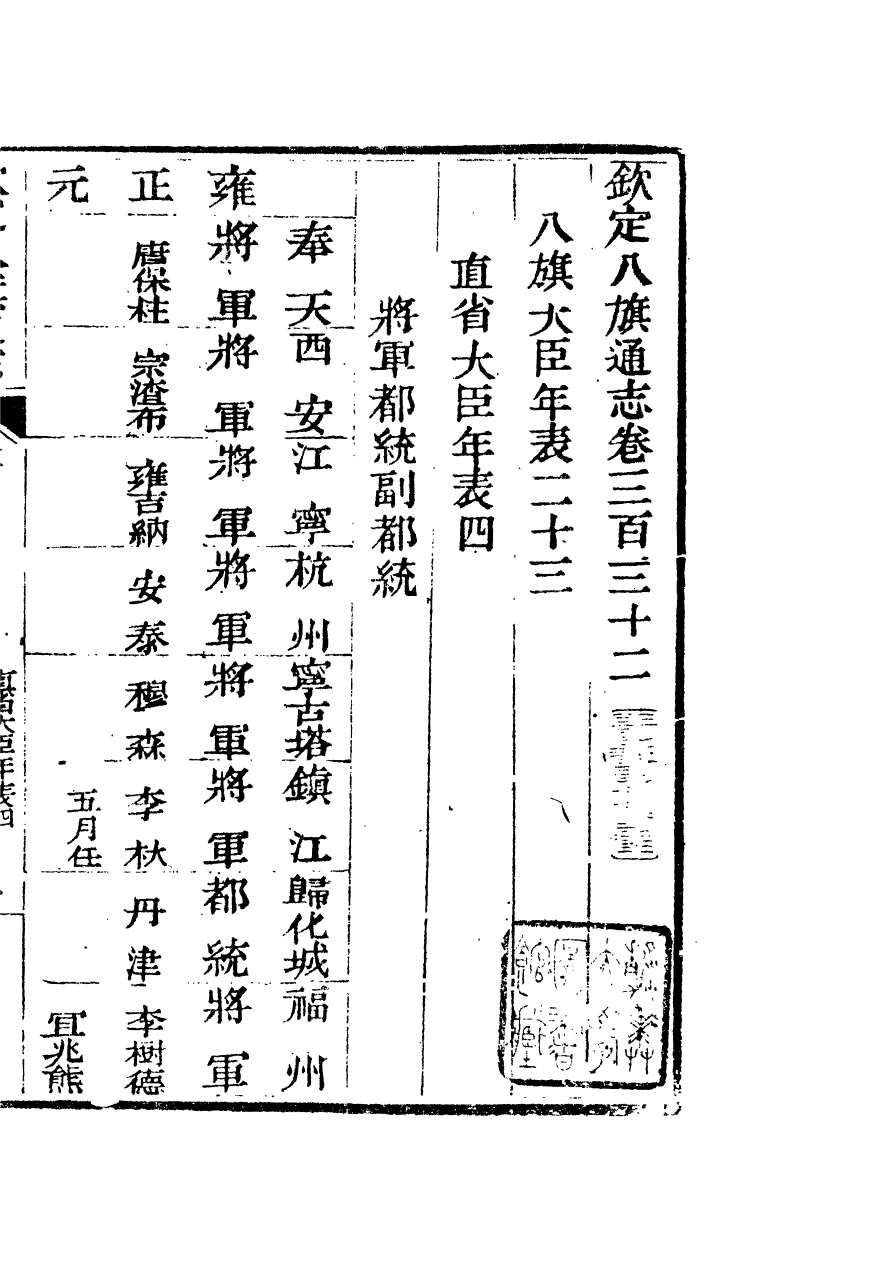 欽定八旗通志卷三百三十二
八旗大臣年表二十三
直省大臣年表四
將軍都統副都統
奉天 西安 江寧 杭州 寧古塔 鎮江 歸化城 福州
雍 將軍 將軍 將軍 將軍 將軍 將軍 都統 將軍
正 唐保柱 宗渣布 雍吉納 安泰 穆森 李杕 丹津 李樹德
元 五月任 宜兆熊
直省大臣年表四